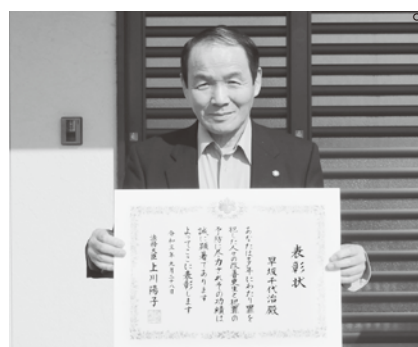 表彰状
早坂千代治殿
あなたは多年にわたり罪を
犯した人々の改善更生と犯罪の
予防に尽力されその功績は
誠に顕著であります
よってここに表彰します
令和三年九月二十八日
法務大臣 上川陽子